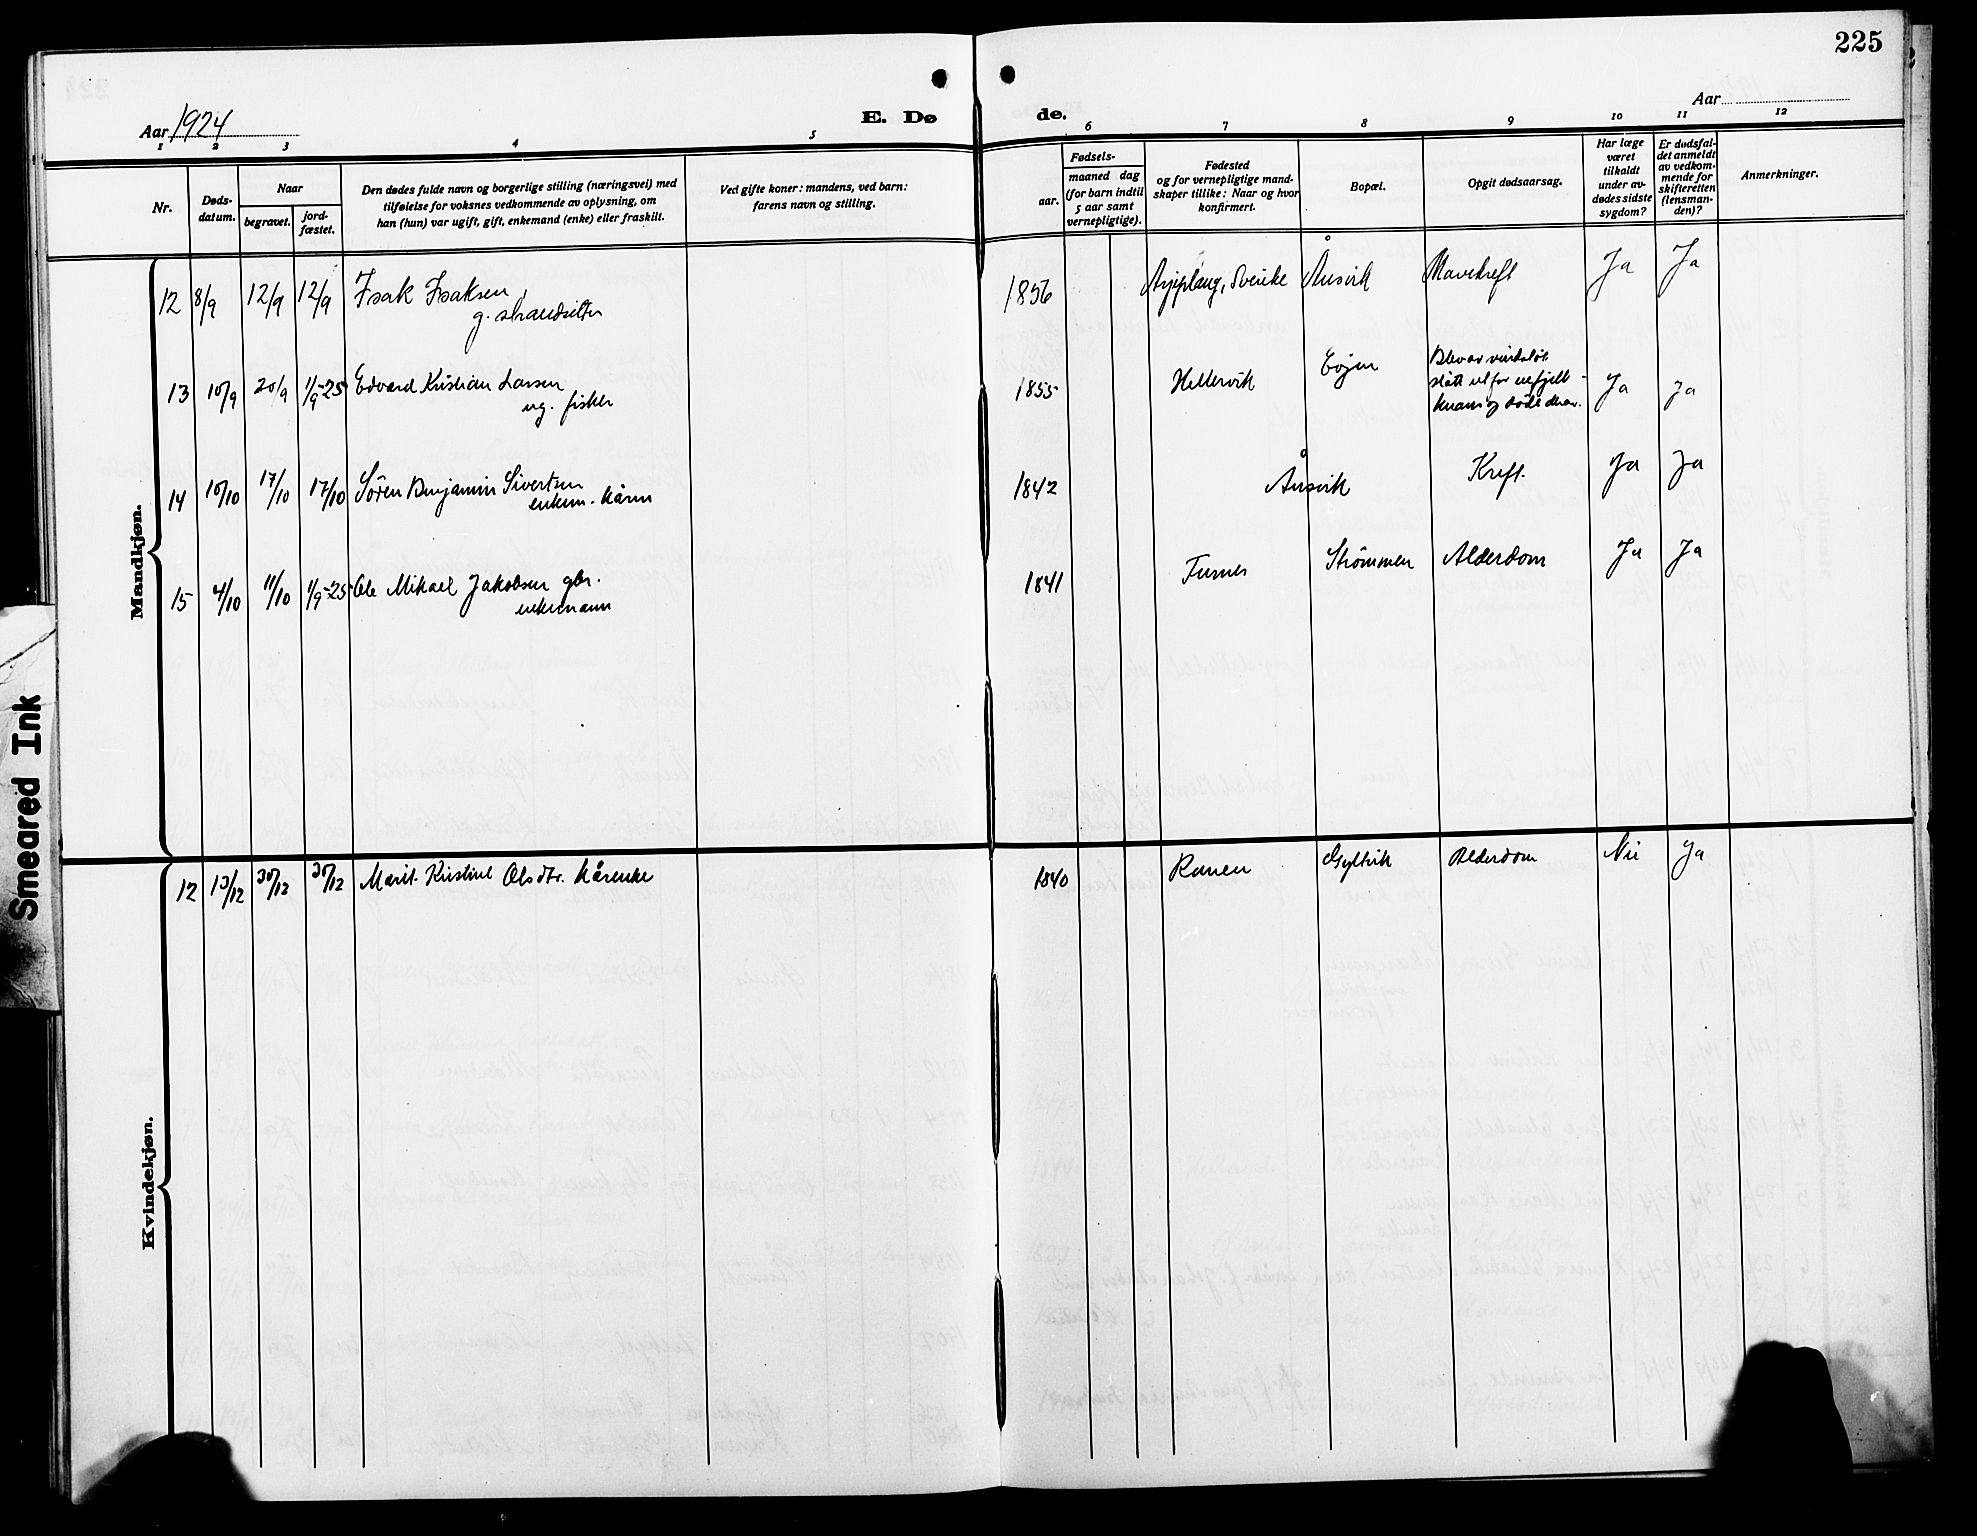 225
Aar 1924
E. Dø
de.
Aar
1 2 3 4 5 6 7 8 9 10 11 12
Nr.
Døds-
datum.
Naar
begravet.
jord-
fæstet.
Den dødes fulde navn og borgerlige stilling (næringsvei) med
tilføielse for voksnes vedkommende av oplysning, om
han (hun) var ugift, gift, enkemand (enke) eller fraskilt.
Ved gifte koner: mandens, ved barn:
farens navn og stilling.
Fødsels-
aar.
maaned dag
(for barn indtil
5 aar samt
vernepligtige).
Fødested
og for vernepligtige mand-
skaper tillike: Naar og hvor
konfirmert.
Bopæl.
Opgit dødsaarsag.
Har læge
været
tilkaldt
under av-
dødes sidste
sygdom?
Er dødsfal-
det anmeldt
av vedkom-
mende for
skifteretten
(lensman-
den)?
Anmerkninger.
Mandkjøn.
12 8/9 12/9 12/9 Isak Isaksen, 1856 Arjeplaug, Sverike Ånsvik Mavekreft Ja Ja
g. strandsitter
13 10/9 20/9 1/9-25 Edvard Kristian Larsen 1855 Hellervik Ja Ja
ug. fisker
14 10/10 17/10 17/10 Sören Benjamin Sivertsen 1842 Ånsvik Kreft. Ja Ja
enkem. kårm
15 4/10 11/10 1/9-25 Ole Mikael Jakobsen gbr. 1841 Furnes Strømmen Alderdom Ja Ja
enkemann
Kvindekjøn.
12 13/12 30/12 30/12 Marit Kristine Olsdtr. kårenke 1840 Ranen Gyltvik Alderdom Nei Ja
Smeared Ink